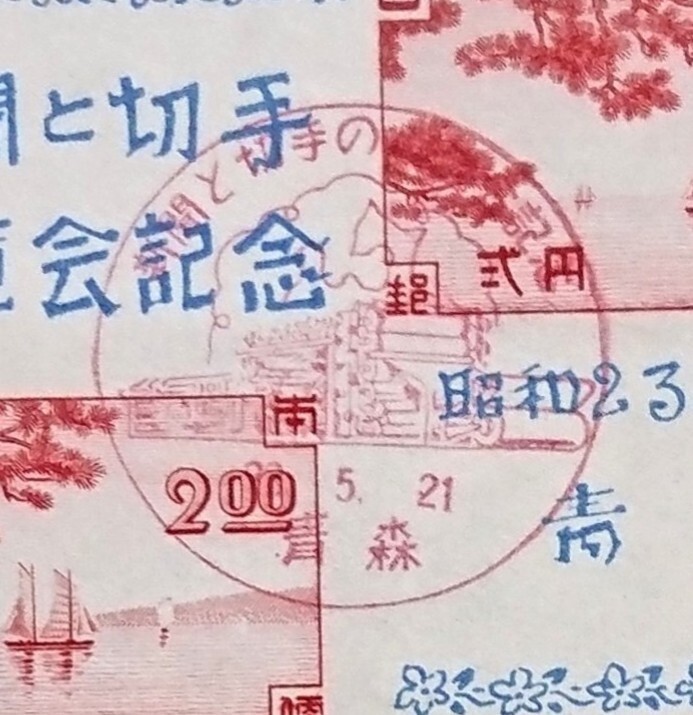 と切手
会記念
新聞と切手の
弐円
郵
昭和23
本
200
5. 21
青森
青